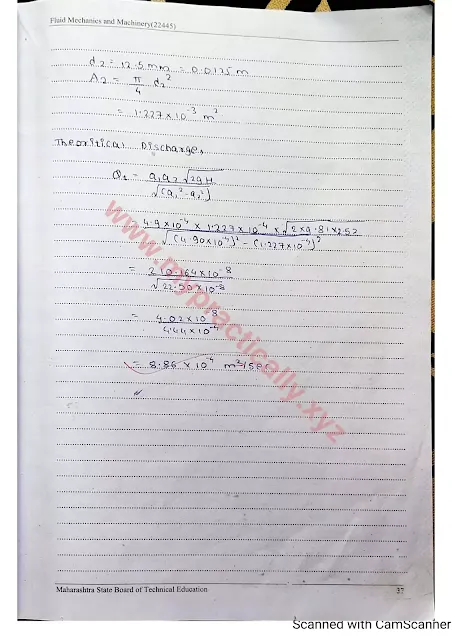 Fluid Mechanics and Machinery(22445)
d₂ = 12.5mm = 0.0125 m
A₂ = π/4 d₂²
= 1.227 x 10⁻³ m²
Theoritical Discharge,
Q₁ = a₁a₂√2gH / √(a₁² - a₂²)
4.9x10⁻⁴ x 1.227x10⁻⁴ x √2x9.81x2.52 / √(4.90x10⁻⁴)² - (1.227x10⁻⁴)²
= / √22.50x10⁻⁸
= 4.02x10⁻⁸ / 4.44x10⁻⁴
= 8.86 x 10⁻⁴ m²/sec
www.mypractically.xyz
Maharashtra State Board of Technical Education 37
Scanned with CamScanner